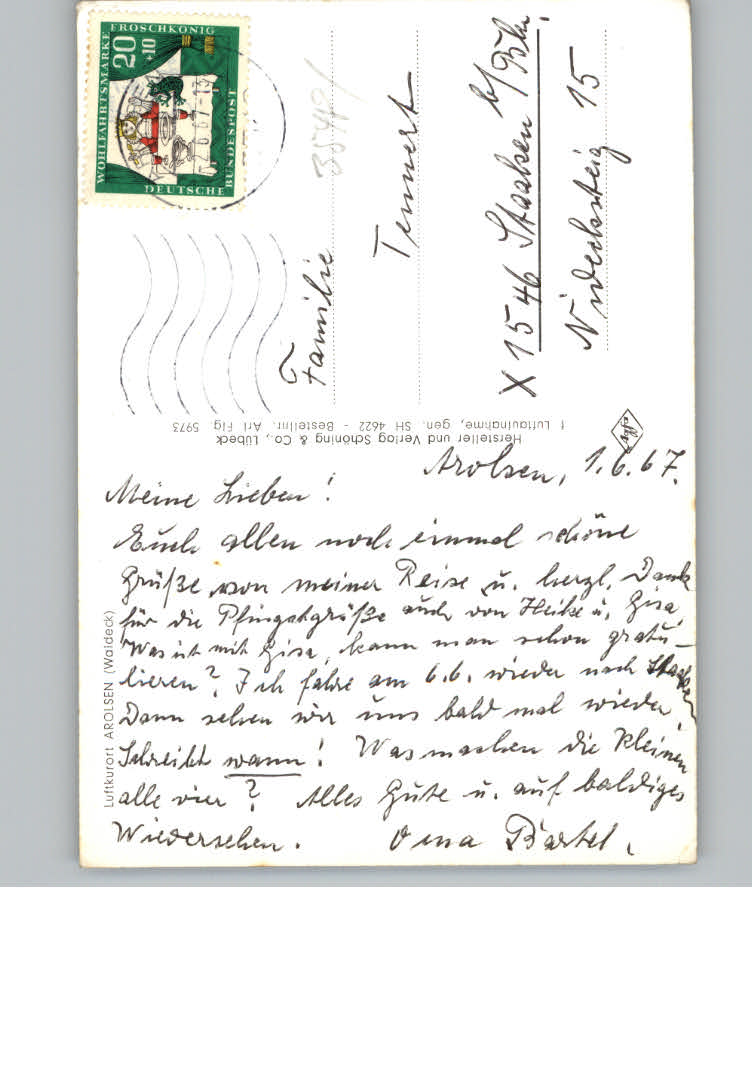 WOHLFAHRTSMARKE
FROSCHKÖNIG
20
+10
DEUTSCHE
BUNDESPOST
6.67-13
3549/
Familie
Tennert
X 1546 Staaken b/Bln.
Niederstieg 15
Hersteller und Verlag Schöning & Co., Lübeck
f Luftaufnahme, gen. SH 4622 - Bestellnr. Arl Flg. 5973
Luftkurort AROLSEN (Waldeck)
Arolsen, 1.6.67.
Meine Lieben!
Euch allen noch einmal schöne
Grüße von meiner Reise u. herzl. Dank
für die Pfingstgrüße auch von Heike u. Gisa.
Was ist mit Gisa, kann man schon gratu-
lieren? Ich fahre am 6.6. wieder nach Staaken
Dann sehen wir uns bald mal wieder.
Schreibt wann! Was machen die Kleinen
alle vier? Alles Gute u. auf baldiges
Wiedersehen. Oma Bartel.